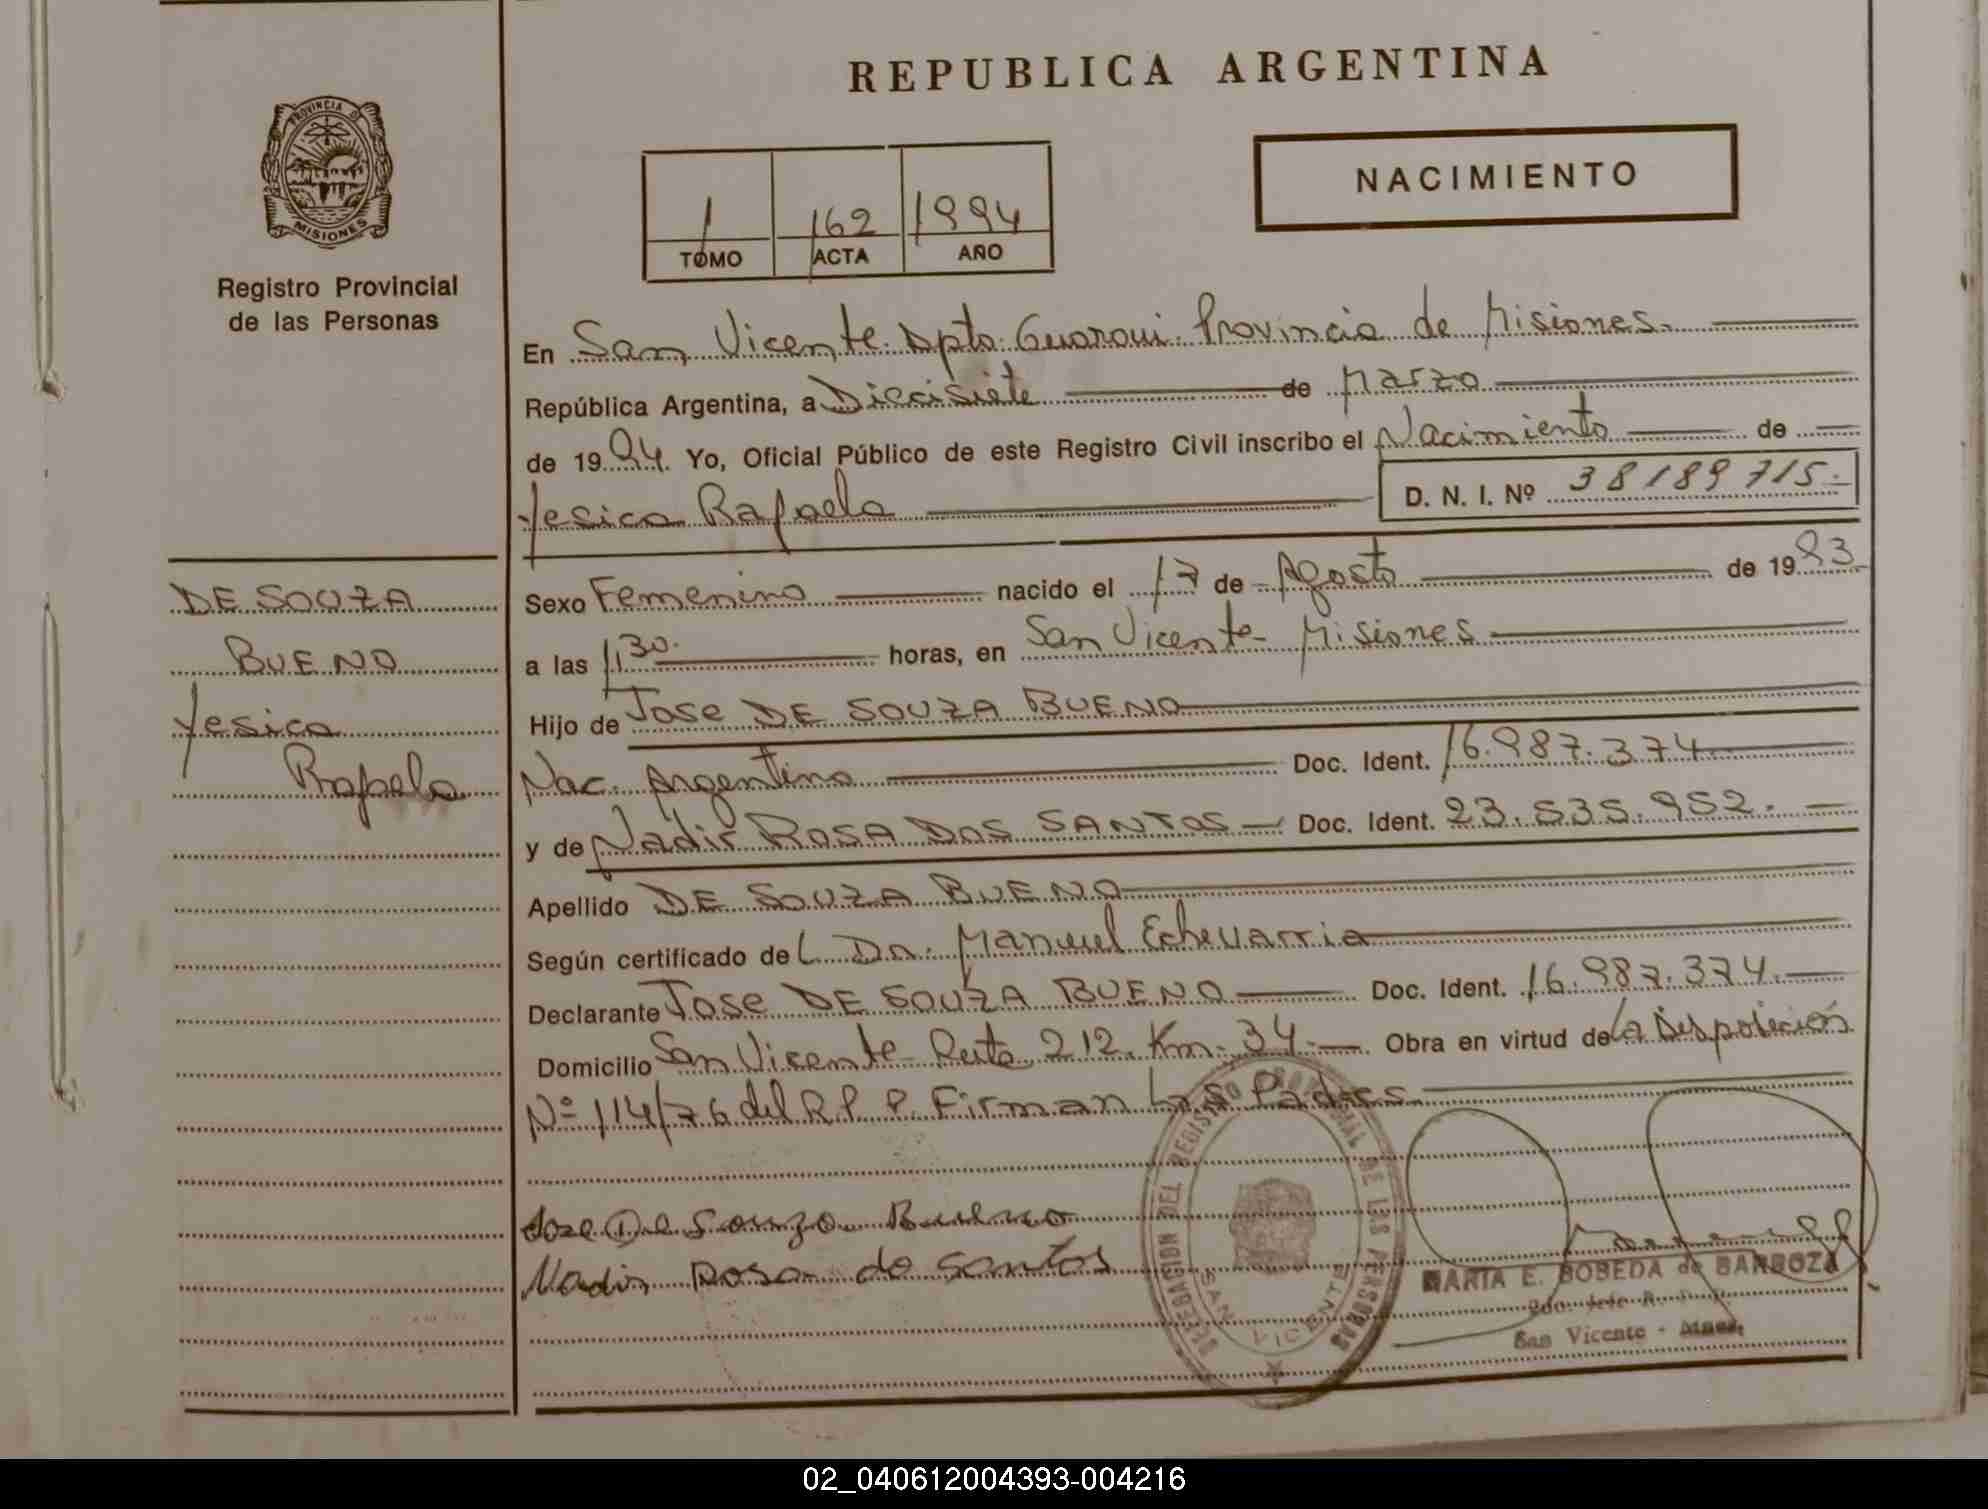 REPUBLICA ARGENTINA
PROVINCIA DE
MISIONES
Registro Provincial
de las Personas
NACIMIENTO
1 162 1994
TOMO ACTA AÑO
En San Vicente Dpto. Guarani. Provincia de Misiones.
República Argentina, a Diecisiete de Marzo
de 1994. Yo, Oficial Público de este Registro Civil inscribo el Nacimiento de
Yesica Rafaela D. N. I. Nº 38189715.
DE SOUZA
BUENO
Yesica
Rafaela
Sexo Femenino nacido el 17 de Agosto de 1993
a las 11,30. horas, en San Vicente Misiones
Hijo de Jose DE SOUZA BUENO
Nac. Argentina Doc. Ident. 16.987.374
y de Nadir ROSA DOS SANTOS Doc. Ident. 23.535.952.
Apellido DE SOUZA BUENO
Según certificado de L. Dn. Manuel Echevarria
Declarante Jose DE SOUZA BUENO Doc. Ident. 16.987.374.
Domicilio San Vicente Ruta 212. Km. 34. Obra en virtud de La Disposición
Nº 114/76 del R.P.P. Firman Los Padres.
Jose De Souza Bueno
Nadir Rosa do Santos
DELEGACION DEL REGISTRO PROVINCIAL DE LAS PERSONAS
SAN VICENTE
MARIA E. BOBEDA de BARBOZA
2do. Jefe R.
San Vicente - Mnes.
02_040612004393-004216